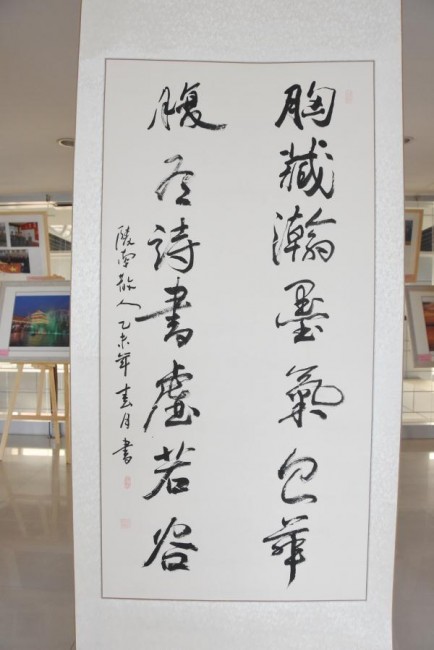 胸藏瀚墨氣自華
腹有詩書虛若谷
陵南散人乙未年春月書